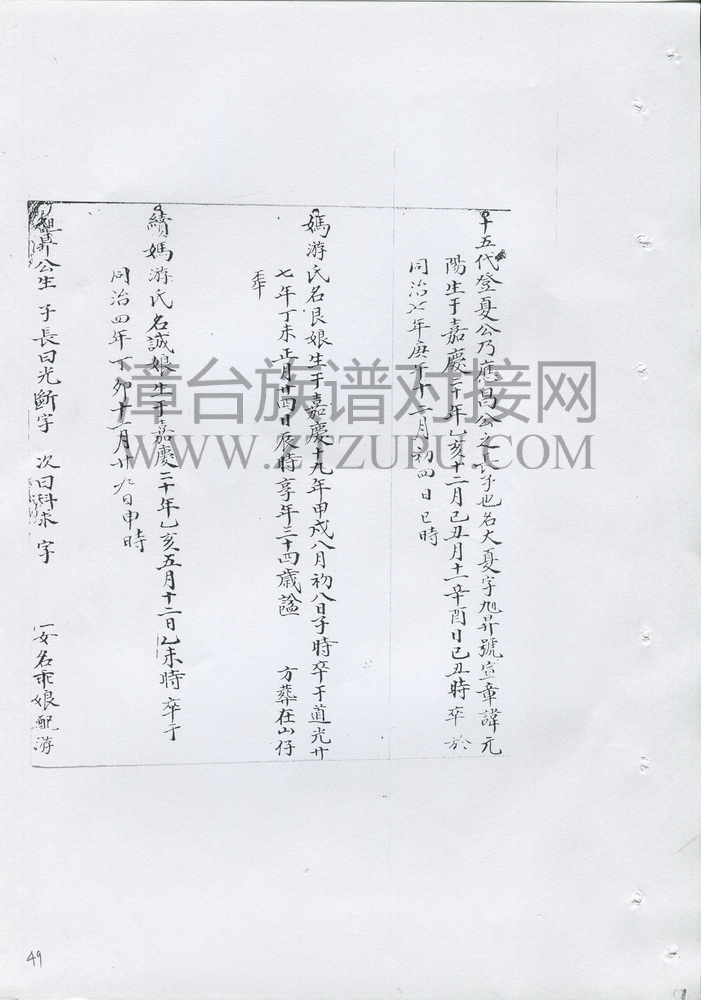 十五代登夏公乃應昌公之長子也名大夏字旭昇號宣章諱元
陽生于嘉慶二十年乙亥十二月己丑月十一辛酉日己丑時卒於
同治七年庚年十二月初四日巳時
媽游氏名良娘生于嘉慶十九年甲戌八月初八日子時卒于道光廿
七年丁未正月廿四日辰時享年三十四歲謚 方葬在山仔
續媽游氏名誠娘生于嘉慶二十年乙亥五月十二日乙未時卒于
同治四年丁卯十二月廿九日申時
昇公生 子長曰光斷字 次曰科 字 一女名乖娘配游
漳台族谱对接网
WWW.ZTZUPU.COM
49